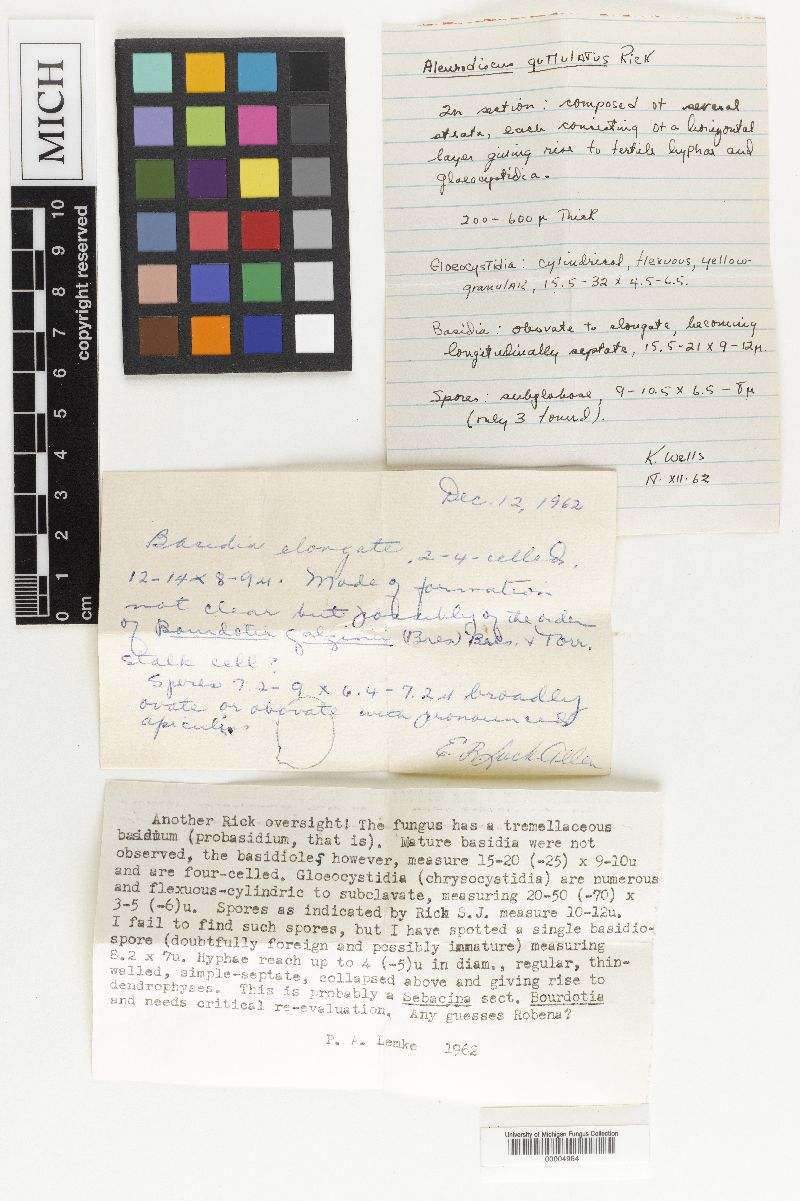 MICH
0 1 2 3 4 5 6 7 8 9 10
cm
copyright reserved
Aleurodiscus guttulatus Rick
In section: composed of several
strata, each consisting of a horizontal
layer giving rise to fertile hyphae and
gloeocystidia.
200-600 μ Thick
Gloeocystidia: cylindrical, flexuous, yellow-
granular, 15.5-32 x 4.5-6.5.
Basidia: obovate to elongate, becoming
longitudinally septate, 15.5-21 x 9-12μ.
Spores: subglobose, 9-10.5 x 6.5-8μ
(only 3 found).
K. Wells
XII.62
Dec. 12, 1962
Basidia elongate, 2-4-celled,
12-14 x 8-9μ. Mode of formation
not clear but possibly of the order
of Bourdotia galzinii (Bres) Bres. & Torr.
stalk cell?
Spores 7.2-9 x 6.4-7.2μ broadly
ovate or obovate with pronounced
apiculus
E R Luck-Allen
Another Rick oversight! The fungus has a tremellaceous
basidium (probasidium, that is). Mature basidia were not
observed, the basidioles however, measure 15-20 (-25) x 9-10u
and are four-celled. Gloeocystidia (chrysocystidia) are numerous
and flexuous-cylindric to subclavate, measuring 20-50 (-70) x
3-5 (-6)u. Spores as indicated by Rick S.J. measure 10-12u.
I fail to find such spores, but I have spotted a single basidio-
spore (doubtfully foreign and possibly immature) measuring
8.2 x 7u. Hyphae reach up to 4 (-5)u in diam., regular, thin-
walled, simple-septate, collapsed above and giving rise to
dendrophyses. This is probably a Sebacina sect. Bourdotia
and needs critical re-evaluation. Any guesses Robena?
P. A. Lemke 1962
University of Michigan Fungus Collection
00004984